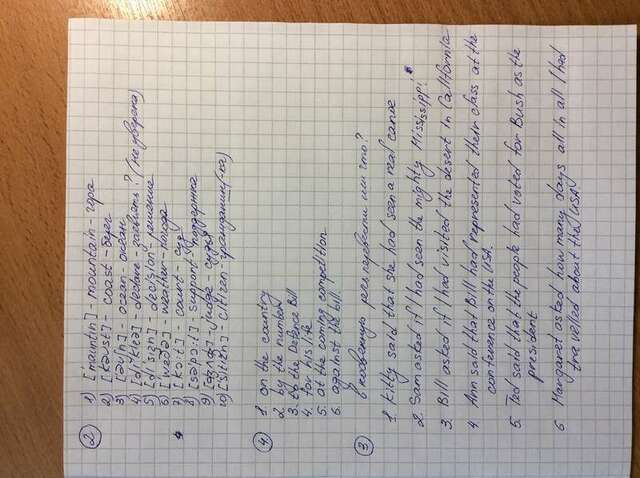 ② 1) ['mauntin] - mountain - гора
2) [kəust] - coast - берег
3) ['əuʃn] - ocean - океан
4) [di'kleə] - declare - заявить? (не уверена)
5) [di'siʒn] - decision - решение
6) ['weðə] - weather - погода
7) [kɔ:t] - court - суд
8) [sə'pɔ:t] - support - поддержка
9) [dʒʌdʒ] - judge - судья
10) ['sitizn] - citizen - гражданин(-ка)
④ 1. on the country
2. by the number
3. to the Defence Bill
4. for his life
5. at the coming competition
6. against the bill.
③ в косвенную речь перевести или что?
1. Kitty said that she had seen a real canoe
2. Sam asked if I had seen the mighty Mississippi
3. Bill asked if I had visited the desert in California
4 Ann said that Bill had represented their class at the
conference on the USA.
5. Ted said that the people had voted for Bush as the
president
6 Margaret asked how many days all in all I had
travelled about the USA